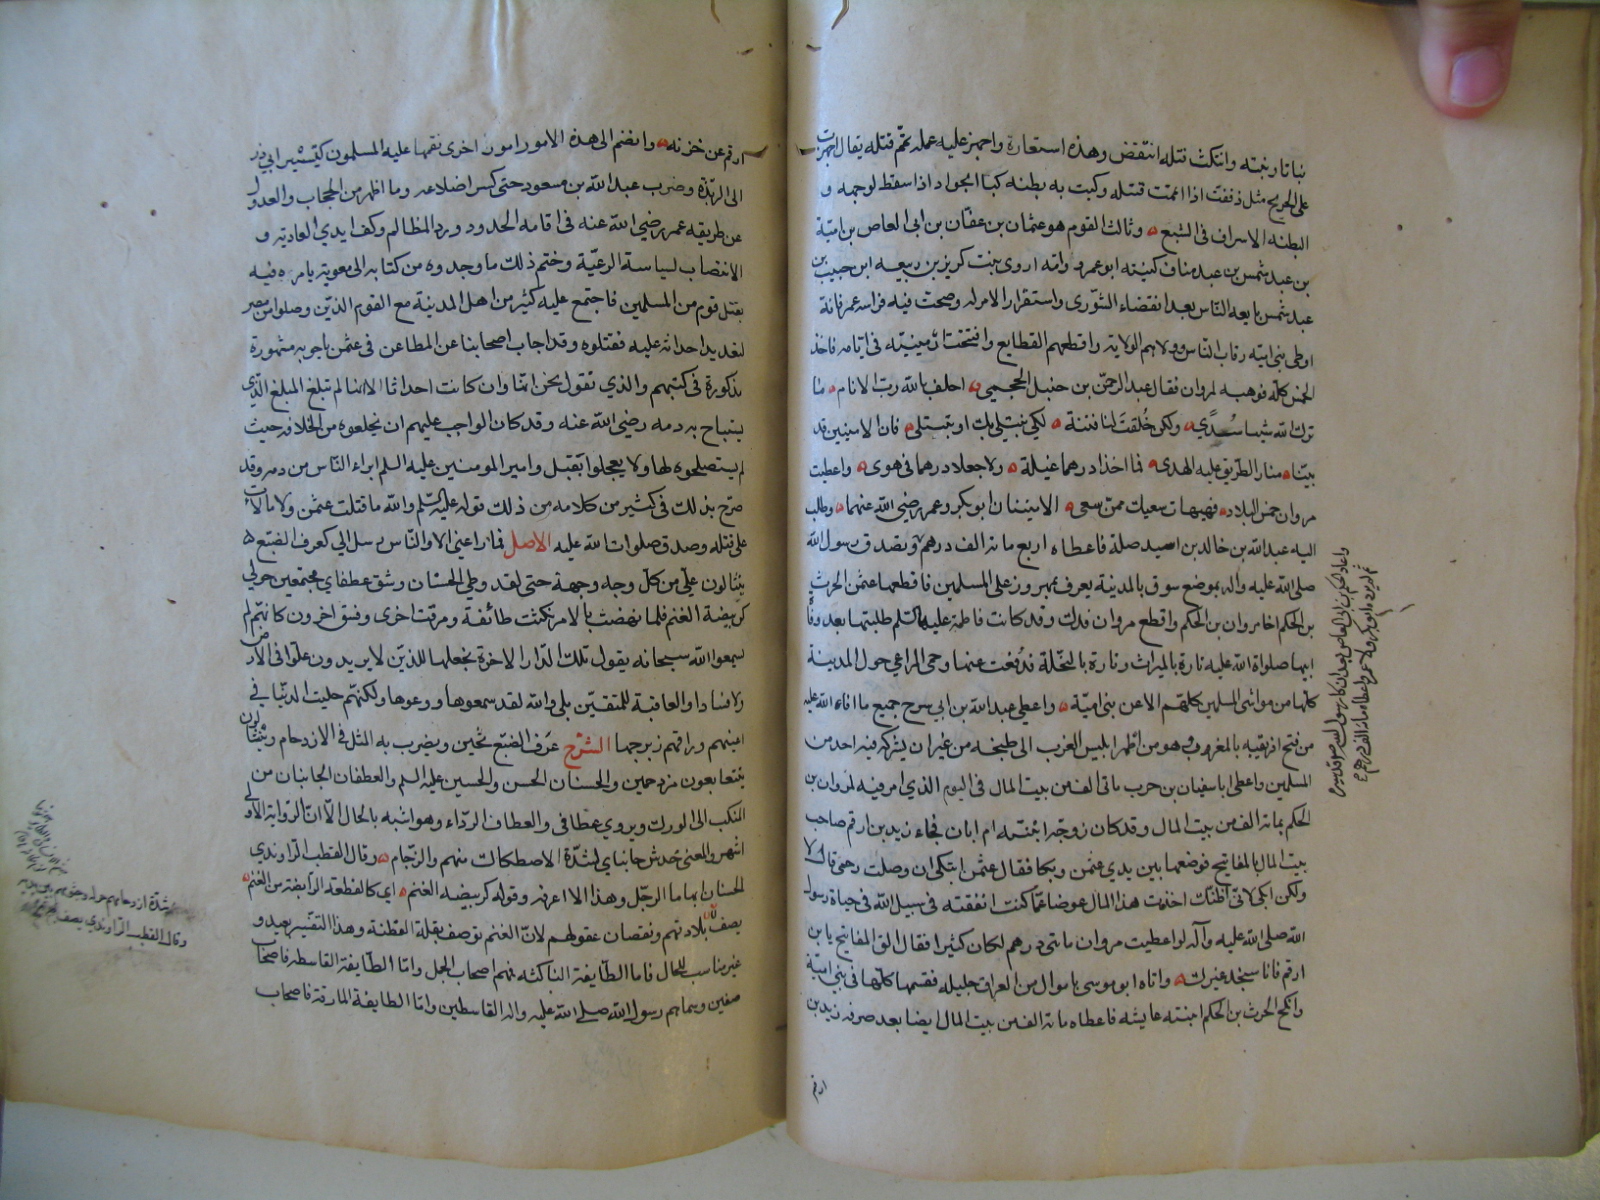 نباتا رنبته وانتكث فتله انتقض وهذه استعارة واجهز عليه عمله تمم قتله يقال اجهزت
على الجريح مثل ذففت اذا اتممت قتله وكبت به بطنته كبا الجواد اذا سقط لوجهه و
البطنة الاسراف فى الشبع وثالث القوم هو عثمان بن عفان بن ابى العاص بن امية
بن عبد شمس بن عبد مناف كنيته ابو عمرو وامه اروى بنت كريز بن ربيعه ابن حبيب بن
عبد شمس بايعه الناس بعد انقضاء الشورى واستقرار الامر له وصحت فيه فراسه عمر فانة
اوطى بنى اميه رقاب الناس وولاهم الولايه واقطعهم القطايع وافتتحت ارمينيه فى ايامه فاخذ
الخمس كله فوهبه لمروان فقال عبد الرحمن بن حنبل الجمحي احلف بالله رب الانام ما
ترك الله شيا سدى ولكن خلقت لنا فتنة لكي نبتلى بك او تبتلى فان الامينين قد
بينا منار الطريق عليه الهدى فما اخذا درهما غيلة ولا جعلا درهما فى هوى واعطيت
مروان خمس البلاد فهيهات سعيك ممن سعى الامينان ابو بكر وعمر رضي الله عنهما وطلب
اليه عبد الله بن خالد بن اسيد صلة فاعطاه اربع مائه الف درهم وتصدق رسول الله
صلى الله عليه واله بموضع سوق بالمدينة يعرف بمهروز على المسلمين فاقطعها عثمن الحرث
بن الحكم اخا مروان بن الحكم واقطع مروان فدك وقد كانت فاطمة عليها السلم طلبتها بعد وفاة
ابيها صلواة الله عليه تارة بالميراث وتارة بالنحلة فدفعت عنها وحمى المراعي حول المدينة
كلها من مواشى المسلمين كلهم الا عن بنى امية واعطى عبد الله بن ابي سرح جميع ما افاء الله عليه
من فتح افريقيه بالمغرب وهو من اطرابلس الغرب الى طنجه من غير ان يشركه فيه احد من
المسلمين واعطى ابا سفيان بن حرب ماتى الف من بيت المال فى اليوم الذي امر فيه لمروان بن
الحكم بمائة الف من بيت المال وقد كان زوجه ابنته ام ابان فجاء زيد بن ارقم صاحب
بيت المال بالمفاتيح فوضعها بين يدي عثمن وبكا فقال عثمن اتبكى ان وصلت رحمى قال لا
ولكن ابكى لانى اظنك اخذت هذا المال عوضا عما كنت انفقته فى سبيل الله فى حياة رسول
الله صلى الله عليه وآله لو اعطيت مروان مائتى درهم لكان كثيرا فقال الق المفاتيح يا بن
ارقم فانا سنجد غيرك واتاه ابو موسى باموال من العراق جليله فقسمها كلها فى بنى امية
وانكح الحرث بن الحكم ابنته عايشه فاعطاه مائه الف من بيت المال ايضا بعد صرفه زيد بن
ارقم
ارقم عن خزنه وانضم الى هذه الامور امور اخرى نقمها عليه المسلمون كتسيير ابي ذر
الى الربذة وضرب عبد الله بن مسعود حتى كسر اضلاعه وما اظهر من الحجاب والعدول
عن طريقه عمر رضي الله عنه فى اقامه الحدود ورد المظالم وكف ايدي العاديه و
الانتصاب لسياسة الرعية وختم ذلك ما وجدوه من كتابه الى معويه يامره فيه
بقتل قوم من المسلمين فاجتمع عليه كثير من اهل المدينة مع القوم الذين وصلوا من مصر
لتعديد احداثه عليه فقتلوه وقد اجاب اصحابنا عن المطاعن فى عثمن باجوبه مشهورة
مذكورة فى كتبهم والذي نقول نحن انها وان كانت احداثا الا انها لم تبلغ المبلغ الذي
يستباح به دمه رضي الله عنه وقد كان الواجب عليهم ان يخلعوه من الخلافه حيث
لم يستصلحوه لها ولا يعجلوا بقتله وامير المومنين عليه السلم ابراء الناس من دمه وقد
صرح بذلك فى كثير من كلامه من ذلك قوله عليه السلم والله ما قتلت عثمن ولا مالأت
على قتله وصدق صلوات الله عليه الاصل فما راعنى الا والناس رسل الي كعرف الضبع
ينثالون علي من كل وجه وجهة حتى لقد وطي الحسنان وشق عطفاي مجتمعين حولي
كربيضة الغنم فلما نهضت بالامر نكثت طائفة ومرقت اخرى وفسق اخرون كانهم لم
يسمعوا الله سبحانه يقول تلك الدار الاخرة نجعلها للذين لا يريدون علوا فى الارض
ولا فسادا والعاقبة للمتقين بلى والله لقد سمعوها ووعوها ولكنهم حليت الدنيا فى
اعينهم وراقهم زبرجها الشرح عرف الضبع ثخين ويضرب به المثل فى الازدحام وينثالون
يتتابعون مزدحمين والحسنان الحسن والحسين عليهما السلم والعطفان الجانبان من
المنكب الى الورك ويروى عطافى والعطاف الرداء وهو اشبه بالحال الا ان الرواية الاولى
اشهر والمعنى خدش جانباي لشدة الاصطكاك منهم والزحام وقال القطب الراوندي
الحسنان ابهاما الرجل وهذا لا اعرفه وقوله كربيضه الغنم اي كالقطعه الرابضة من الغنم
يصف بلادتهم ونقصان عقولهم لان الغنم توصف بقلة الفطنة وهذا التفسير بعيد و
غير مناسب للحال فاما الطايفة الناكثه فهم اصحاب الجمل واما الطايفة القاسطه فاصحاب
صفين وسماهم رسول الله صلى الله عليه واله القاسطين واما الطايفة المارقة فاصحاب
شدة ازدحامهم حوله وجثومهم بين يديه
وقال القطب الراوندي يصف